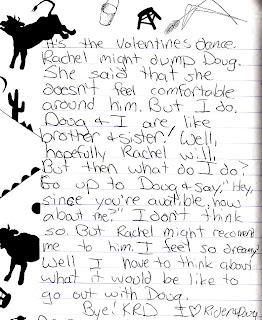 It's the Valentines dance.
Rachel might dump Doug.
She said that she
doesn't feel comfortable
around him. But I do.
Doug & I are like
brother & sister! Well,
hopefully Rachel will.
But then what do I do?
Go up to Doug & say, "Hey,
since you're availible, how
about me?" I don't think
so. But Rachel might recomend
me to him. I feel so dreamy!
Well I have to think about
what it would be like to
go out with Doug.
Bye! KRD I ♡ River